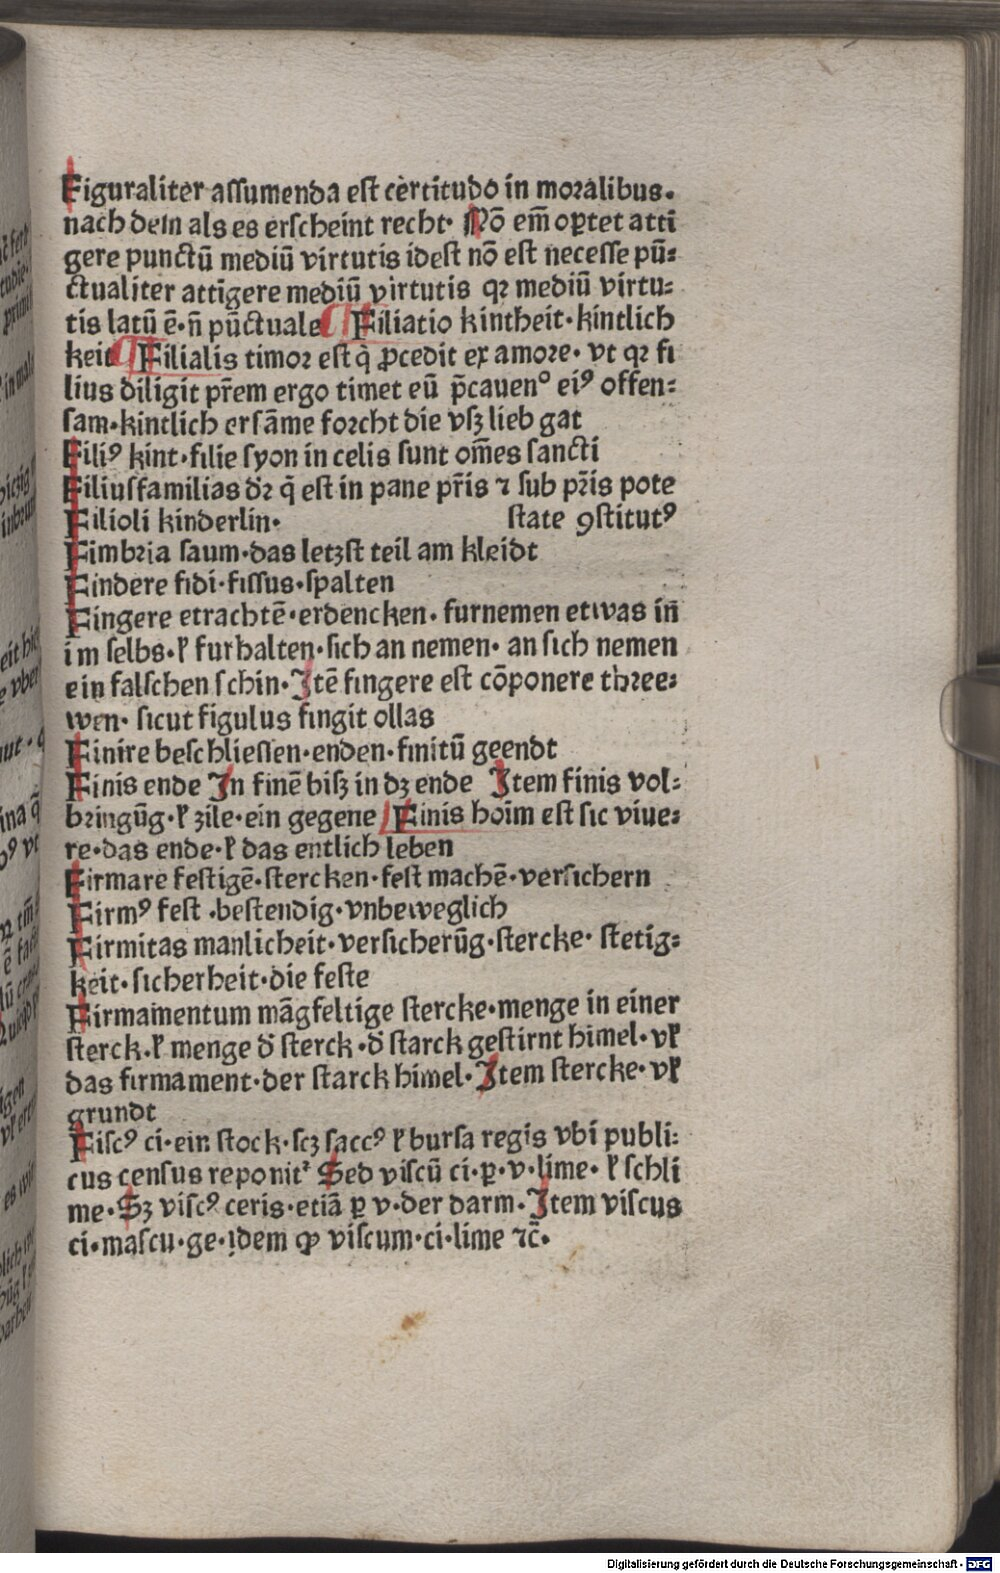 Figuraliter assumenda est certitudo in moralibus.
nach dem als es erscheint recht· Nō em̄ oꝑtet atti
gere punctū mediū virtutis idest nō est necesse pū⸗
ctualiter attigere mediū virtutis qꝛ mediū virtu⸗
tis latū ē·n̄ pūctuale Filiatio kintheit·kintlich
keit Filialis timoꝛ est q̇ ꝓcedit ex amoꝛe· vt qꝛ fi
lius diligit pr̄em ergo timet eū p̄cauen° eiꝰ offen⸗
sam·kintlich ersāme foꝛcht die vsz lieb gat
Filiꝰ kint·filie syon in celis sunt om̄es sancti
Filiusfamilias dꝛ q̄ est in pane pr̄is ⁊ sub pꝛ̄is pote
Filioli kinderlin· state ꝯstitutꝰ
Fimbꝛia saum·das letzst teil am kleidt
Findere fidi·fissus·spalten
Fingere etrachtē·erdencken· furnemen etwas in̄
im selbs·ꝉ furhalten·sich an nemen· an sich nemen
ein falschen schin·Jtē fingere est cōponere thꝛee⸗
wen· sicut figulus fingit ollas
Finire beschliessen·enden·finitū geendt
Finis ende Jn finē bisz in dz ende Jtem finis vol⸗
bꝛingūg·ꝉ zile·ein gegene Finis hoīm est sic viue⸗
re·das ende·ꝉ das entlich leben
Firmare festigē·stercken·fest machē·versichern
Firmꝰ fest ·bestendig·vnbeweglich
Firmitas manlicheit·versicherūg·stercke· stetig⸗
keit·sicherheit·die feste
Firmamentum māgfeltige stercke·menge in einer
sterck·ꝉ menge d̓ sterck·d̓ starck gestirnt himel·vꝉ
das firmament·der starck himel·Jtem stercke·vꝉ
grundt
Fiscꝰ ci·ein stock·scz saccꝰ ꝉ bursa regis vbi publi⸗
cus census reponit᷑ Sed viscū ci·ꝑ·v·lime· ꝉ schli
me·Sz viscꝰ ceris·etiā ꝑ v·der darm·Jtem viscus
ci·mascu·ge·idem ꝙ viscum·ci·lime ⁊c̄·
Digitalisierung gefördert durch die Deutsche Forschungsgemeinschaft - DFG